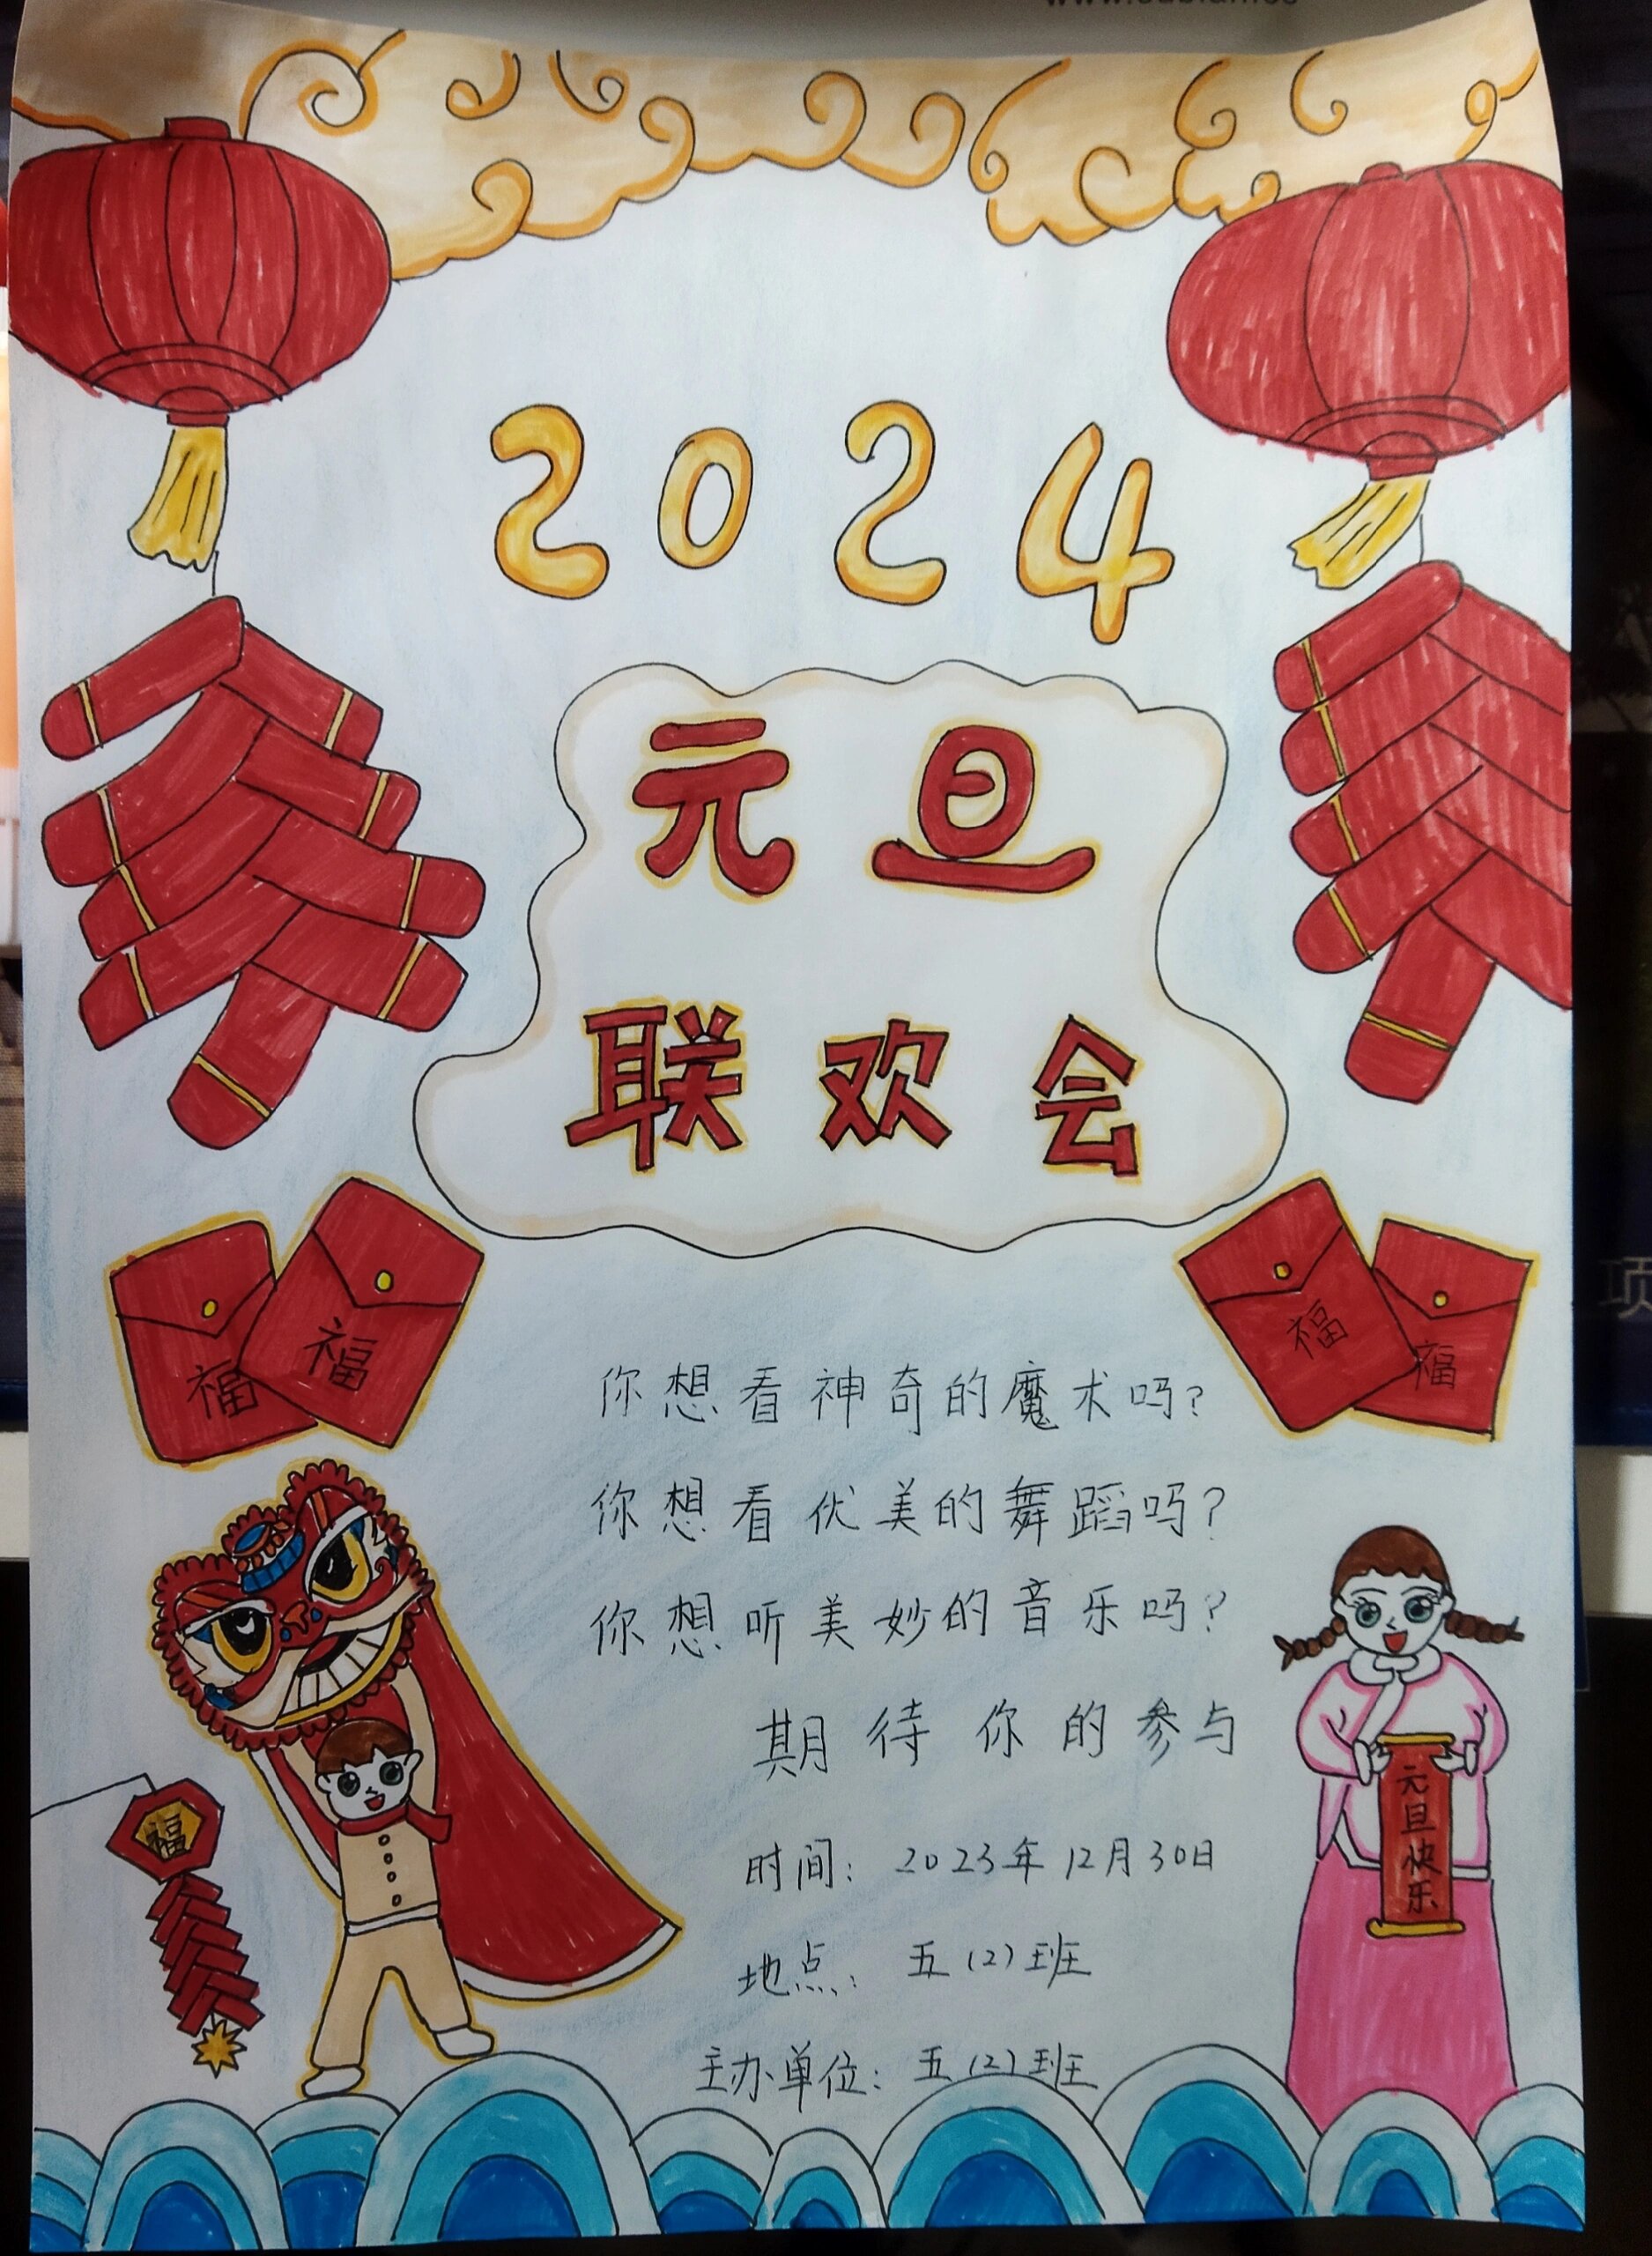 2024
元旦
联欢会
福 福 福 福
你想看神奇的魔术吗?
你想看优美的舞蹈吗?
你想听美妙的音乐吗?
期待你的参与
时间：2023年12月30日
地点：五(2)班
主办单位：五(2)班
福
元旦快乐
项